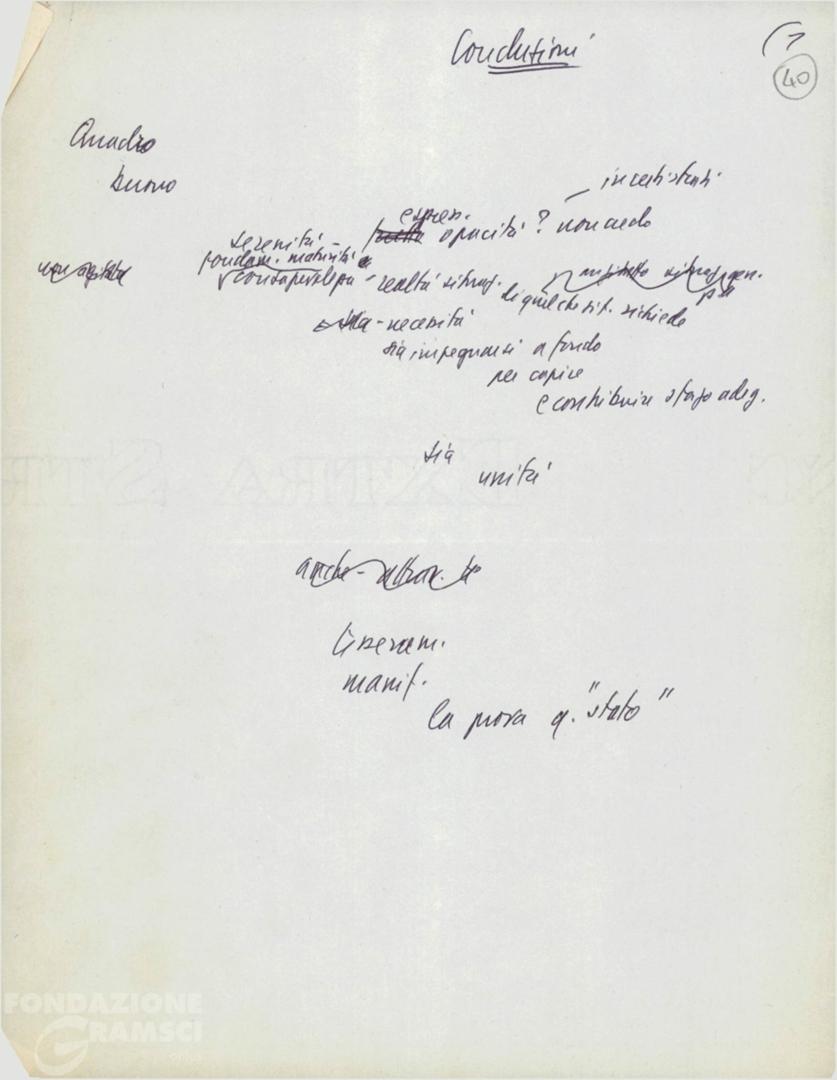 Conclusioni
40
Quadro
buono
incertistrati.
espress.
opacità? non credo
serenità -
fondam. maturità e
consapevolezza - realtà situaz.
di quel che sit. richiede
sia - necessità
sia impegnarsi a fondo
per capire
e contribuire sforzo adeg.
sia
unità
anche - altrov. te
liberam.
manif.
la prova q. "stato"
FONDAZIONE
GRAMSCI